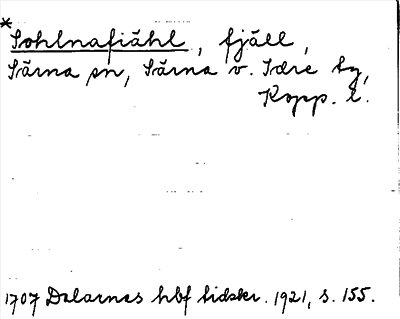 *
Sohlnafiähl, fjäll,
Särna sn, Särna o. Idre tg,
Kopp. l.
1707 Dalarnas hbf tidskr. 1921, s. 155.